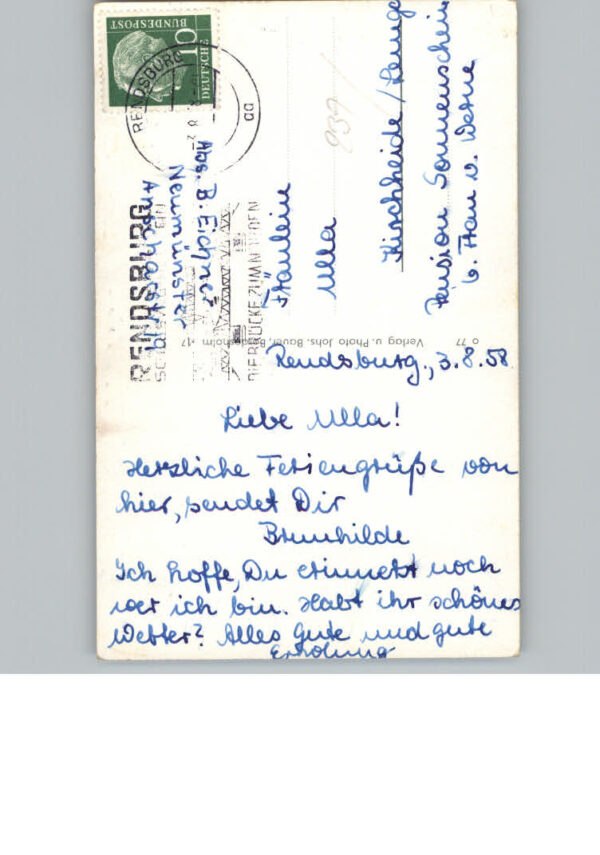 Rendsburg, 3.8.58
Liebe Ulla!
Herzliche Feriengrüße von
hier, sendet Dir
Brunhilde
Ich hoffe, Du erinnerst noch
wer ich bin. Habt ihr schönes
Wetter? Alles Gute und gute
Erholung
Fräulein
Ulla
Kirchheide / Lemgo
Pension Sonnenschein
b. Frau v. Werne
Abs. B. Eichner
Neumünster
10
DEUTSCHE
BUNDESPOST
RENDSBURG
aa
RENDSBURG
EIN
DIE BRÜCKE ZUM NORDEN
239/
o 77 Verlag u. Photo Johs. Bauer, Bordesholm 17